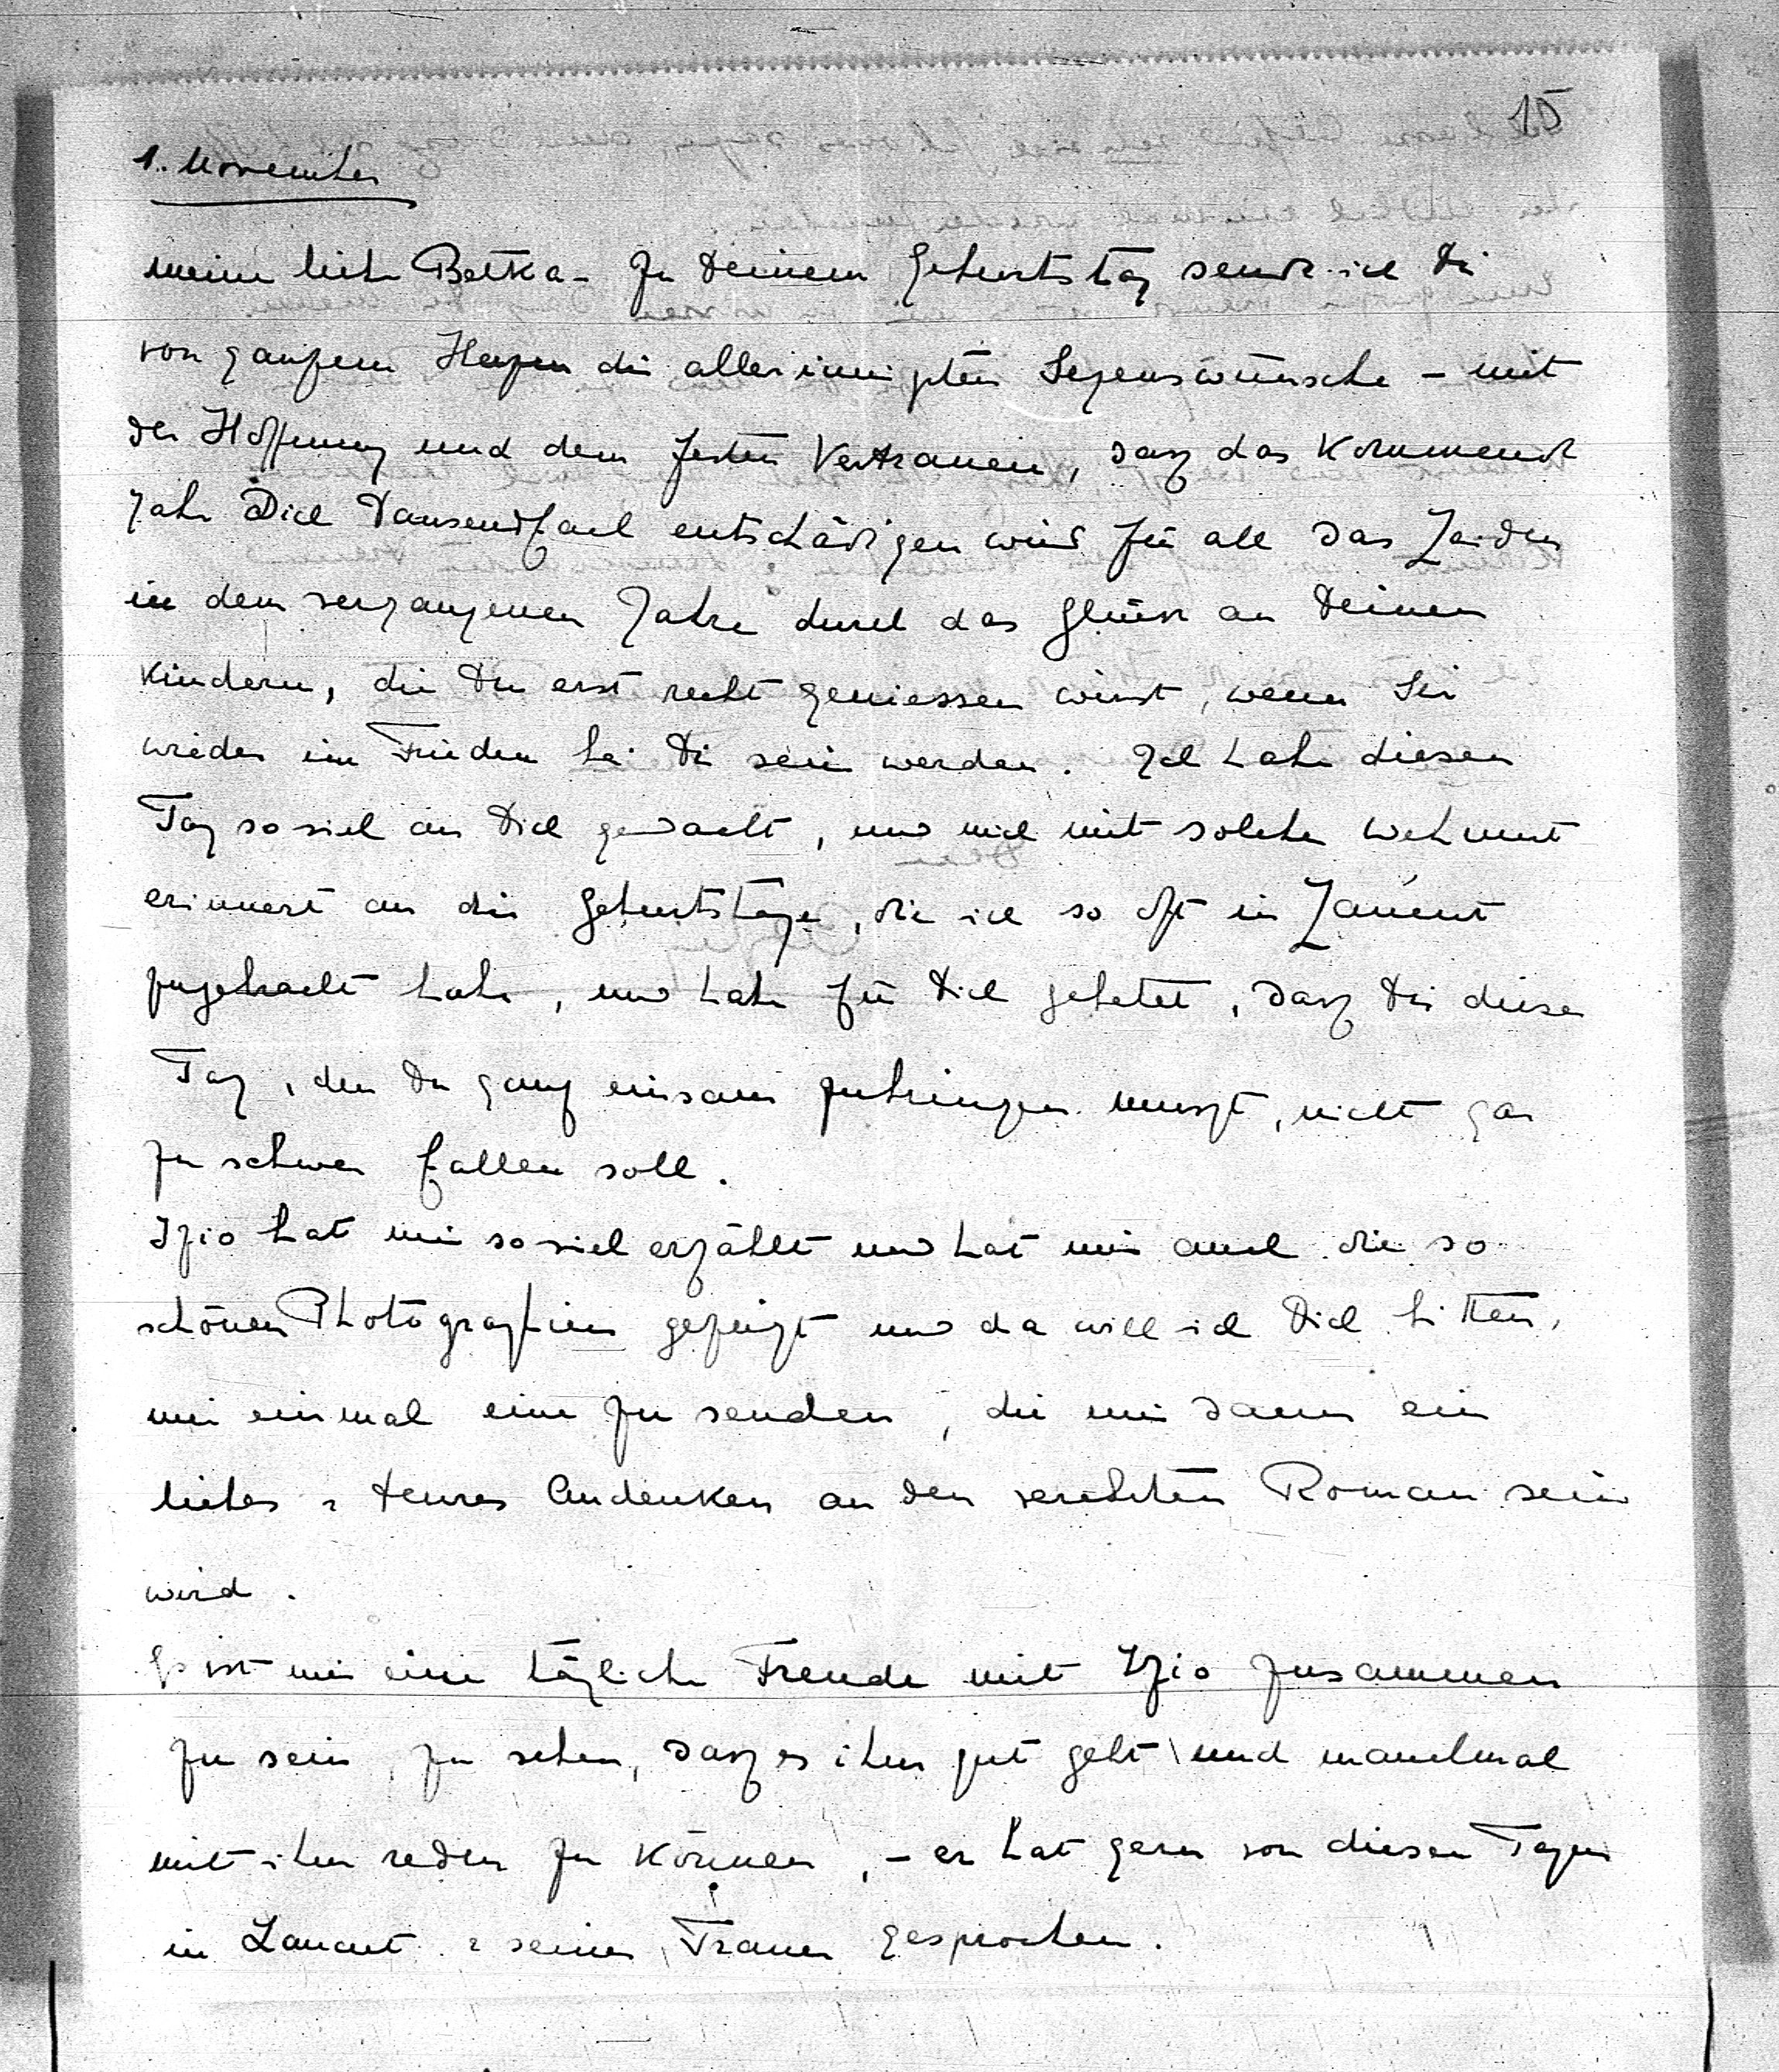 15
1. November
meine liebe Betka - zu Deinem Geburtstag sende ich Dir
von ganzem Herzen die allerinnigsten Segenswünsche - mit
der Hoffnung und dem festen Vertrauen, dasz das kommende
Jahr Dich Tausendfach entschädigen wird für all das Leiden
in dem vergangenen Jahre durch das Glück an Deinen
Kindern, die Du erst recht geniessen wirst, wenn Sie
wieder im Frieden bei Dir sein werden. Ich habe diesen
Tag so viel an Dich gedacht, und mich mit solcher Wehmut
erinnert an die Geburtstage, die ich so oft in Łańcut
zugebracht habe, und habe für Dich gebetet, dasz Dir dieser
Tag, den Du ganz einsam zubringen muszt, nicht gar
zu schwer fallen soll.
Izio hat mir so viel erzählt und hat mir auch die so
schönen Photographien gezeigt und da will ich Dich bitten,
mir einmal eine zu senden, die mir dann ein
liebes & teures Andenken an den verehrten Roman sein
wird.
Es ist mir eine tägliche Freude mit Izio zusammen
zu sein, zu sehen, dasz es ihm gut geht und manchmal
mit ihm reden zu können, - er hat gern von diesen Tagen
in Lancut & seiner Trauer gesprochen.